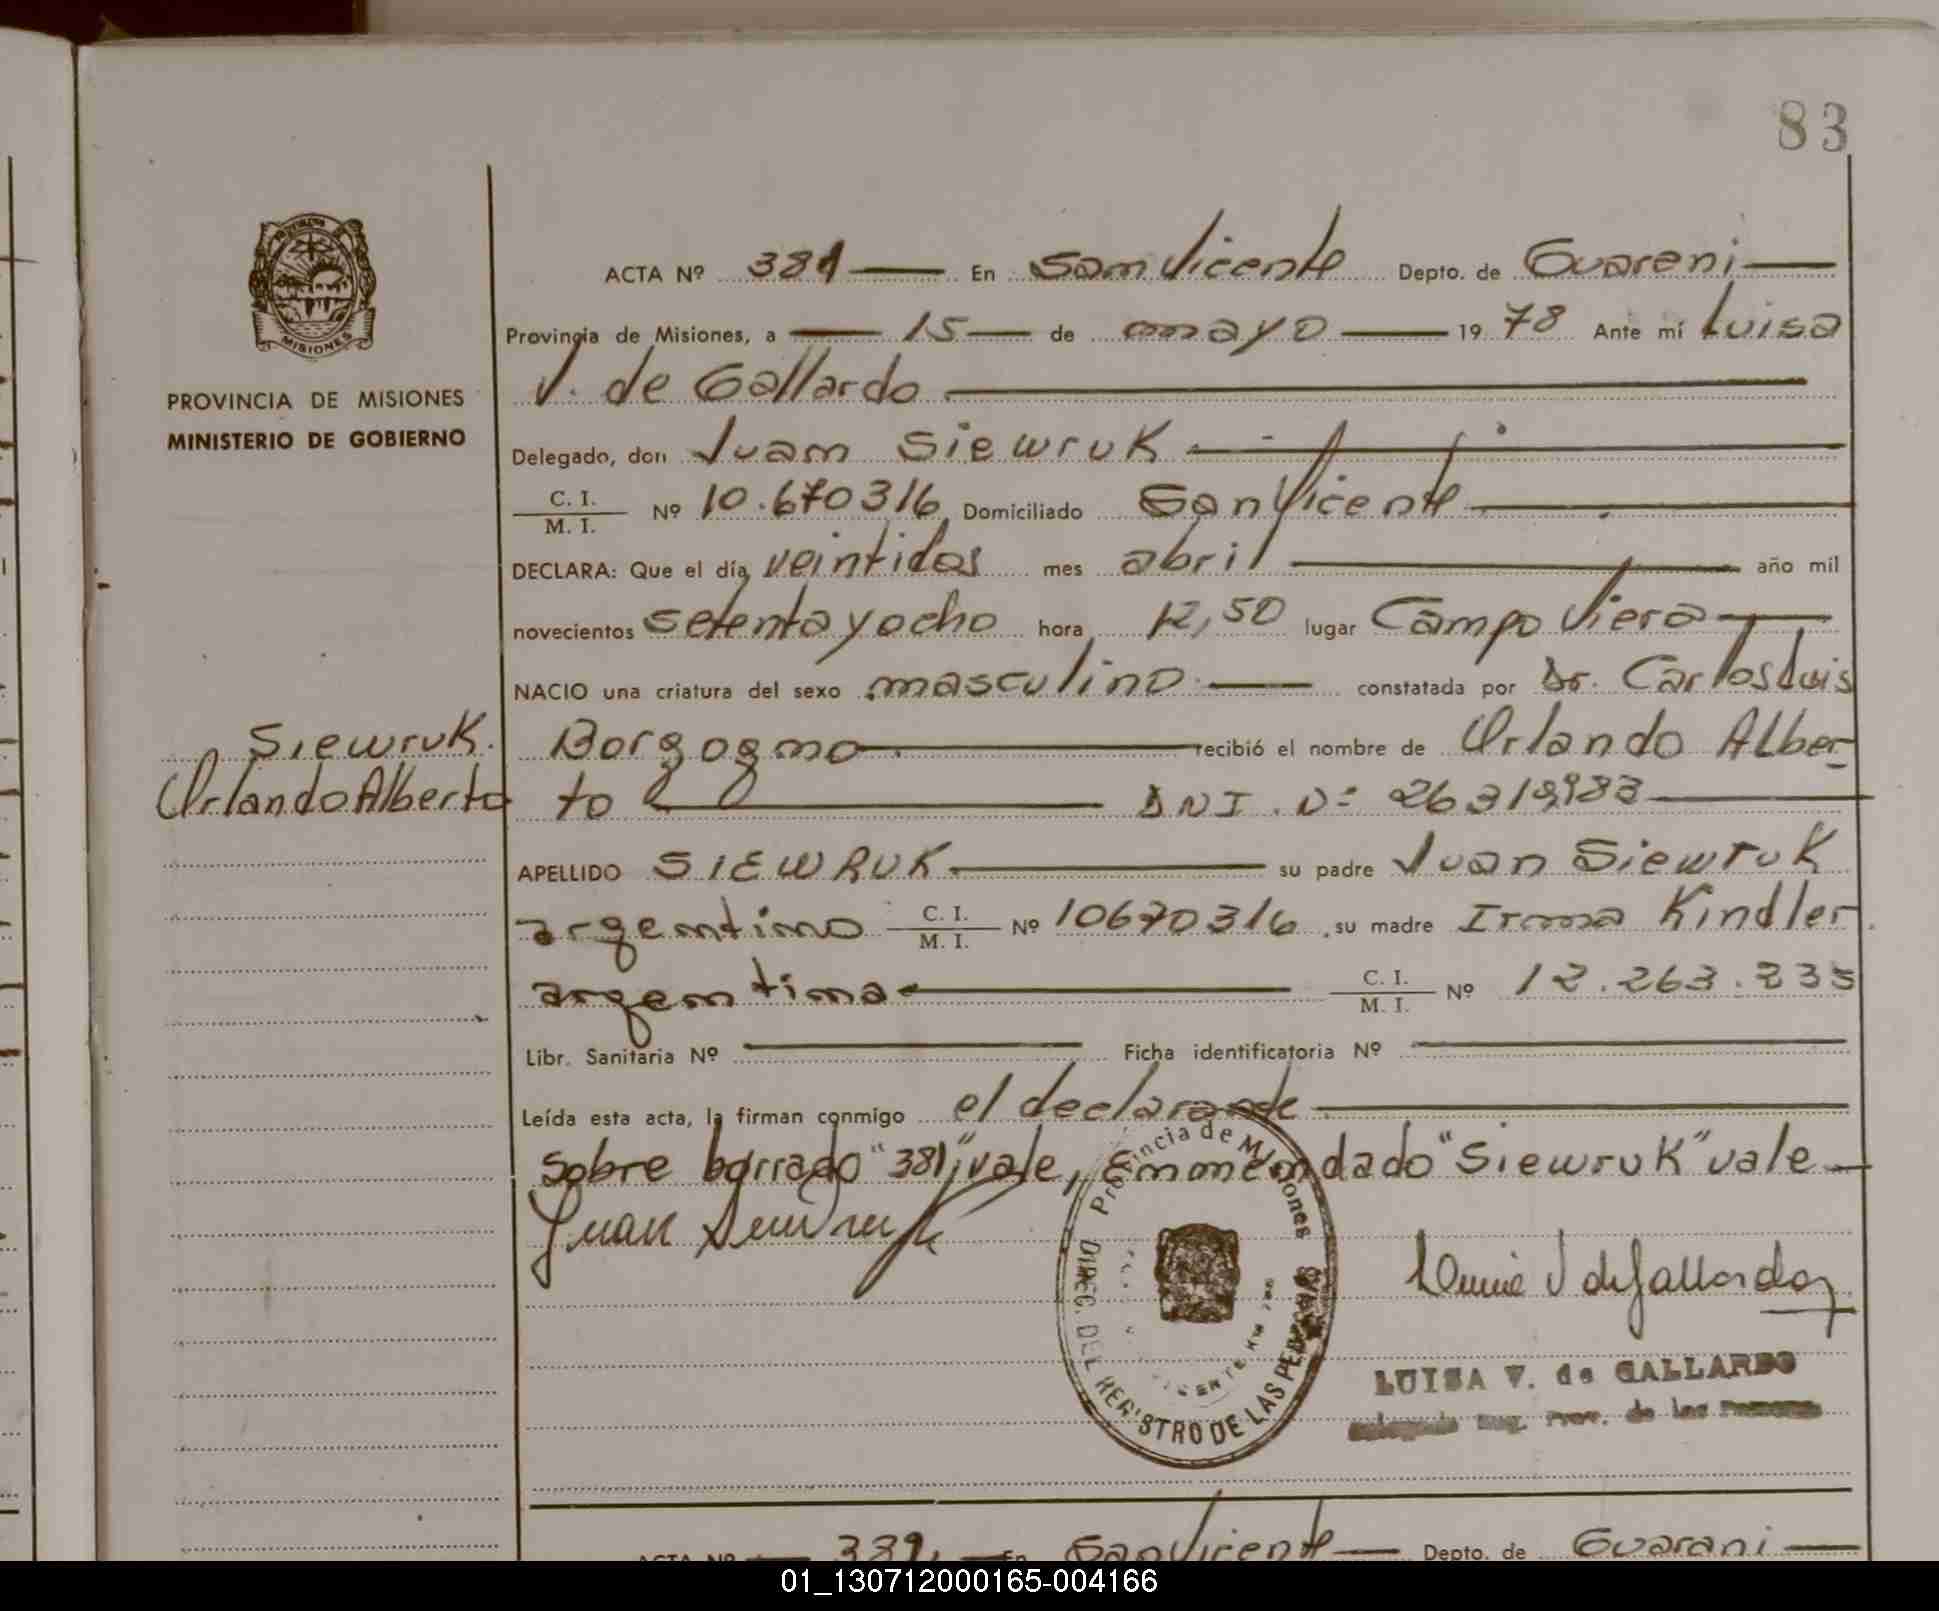 83
ACTA Nº 381 En San Vicente Depto. de Guarani
Provincia de Misiones, a 15 de mayo 1978 Ante mí Luisa
V. de Gallardo
PROVINCIA DE MISIONES
MINISTERIO DE GOBIERNO
MISIONES
Delegado, don Juan Siewruk
C. I.
M. I. Nº 10.670316 Domiciliado San Vicente
DECLARA: Que el día veintidos mes abril año mil
novecientos setenta y ocho hora 12,50 lugar Campo Viera
NACIO una criatura del sexo masculino constatada por Dr. Carlos Luis
Siewruk.
Orlando Alberto
Borgogno recibió el nombre de Orlando Alber
to DNI. Nº 26319983
APELLIDO SIEWRUK su padre Juan Siewruk
argentino C. I. M. I. Nº 10670316, su madre Irma Kindler
argentina C. I. M. I. Nº 12.263.235
Libr. Sanitaria Nº Ficha identificatoria Nº
Leída esta acta, la firman conmigo el declarante
Sobre borrado "381" vale, Enmendado "Siewruk" vale
Juan Siewruk
Provincia de Misiones
DIREC. DEL REGISTRO DE LAS PERSONAS
Luisa V de Gallardo
LUISA V. de GALLARDO
Prov. de las Personas
ACTA Nº 382 En San Vicente Depto. de Guarani
01_130712000165-004166